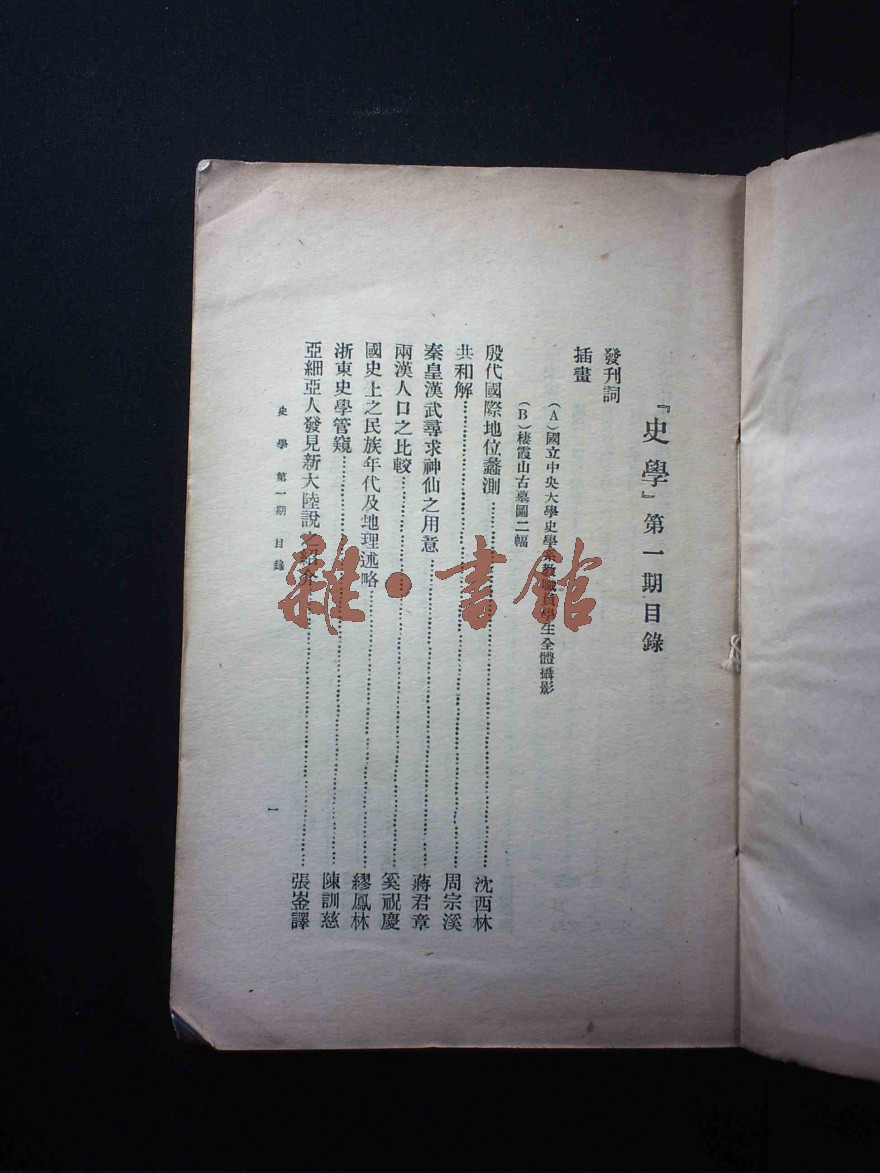 『史學』第一期目錄
發刊詞
插畫
(A)國立中央大學史學系教職員學生全體攝影
(B)棲霞山古墓圖二幅
殷代國際地位蠡測……沈西林
共和解……周宗溪
秦皇漢武尋求神仙之用意……蔣君章
兩漢人口之比較……奚祝慶
國史上之民族年代及地理述略……繆鳳林
浙東史學管窺……陳訓慈
亞細亞人發見新大陸說之紹介……張崟譯
史學 第一期 目錄
一
雜·書館